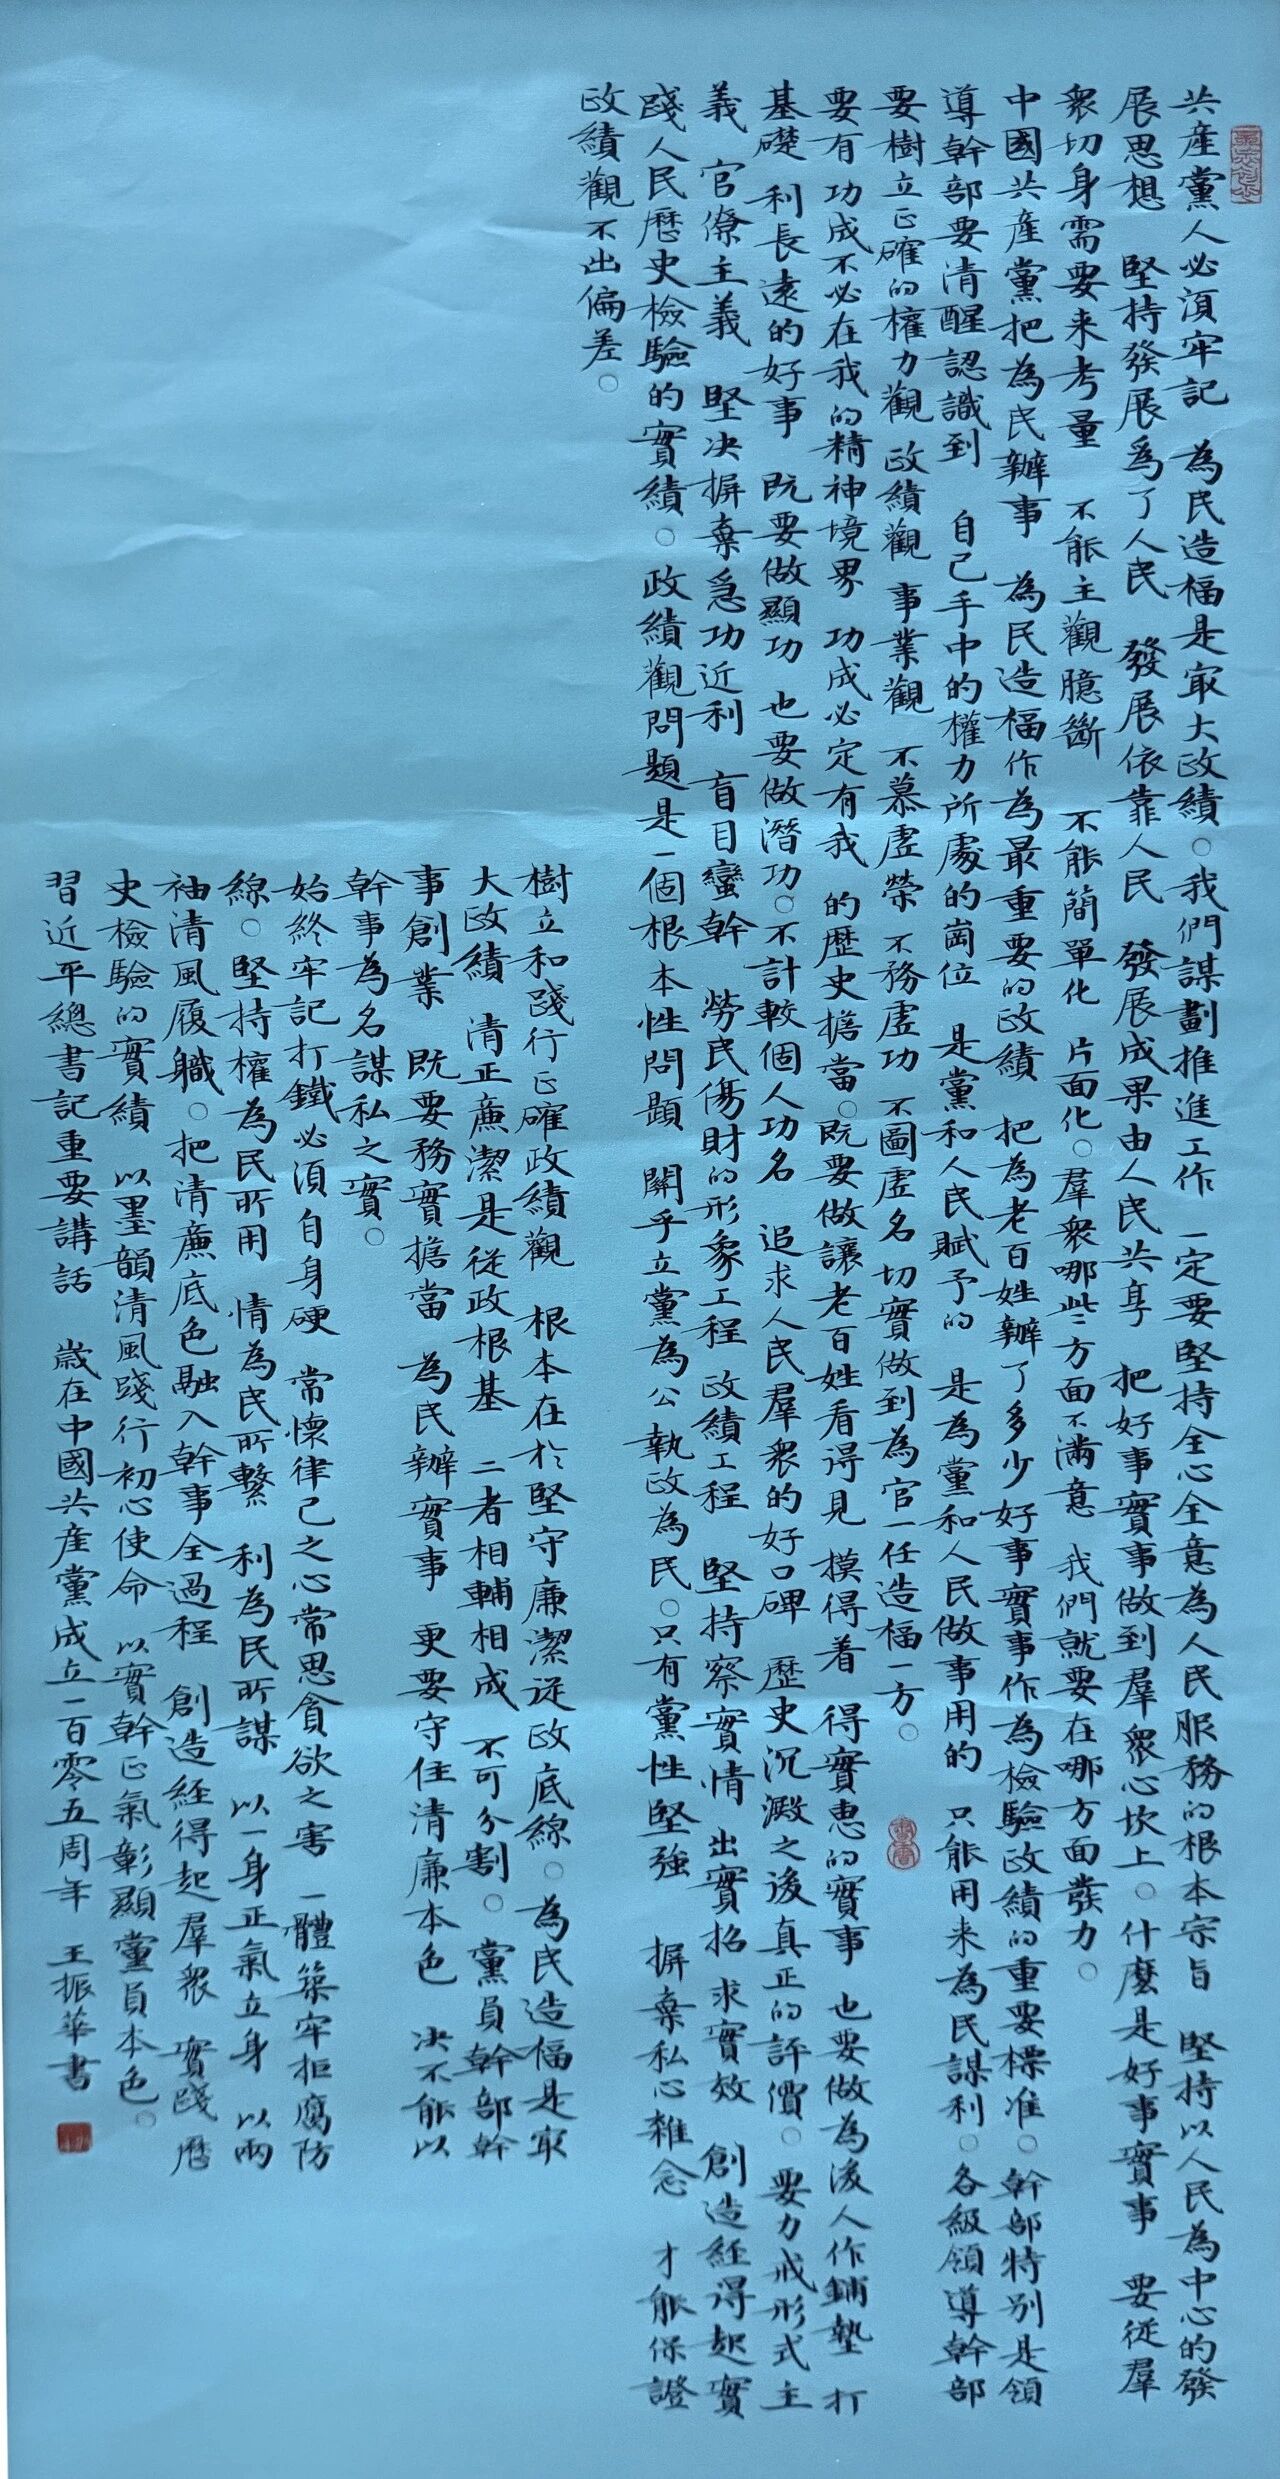 共産黨人必須牢記 為民造福是㝡大政績。我們謀劃推進工作 一定要堅持全心全意為人民服務的根本宗旨 堅持以人民為中心的發
展思想 堅持發展爲了人民 發展依靠人民 發展成果由人民共享 把好事實事做到羣衆心坎上。什麼是好事實事 要從羣
衆切身需要来考量 不能主觀臆斷 不能簡單化 片面化。羣衆哪些方面不滿意 我們就要在哪方面發力。
中國共産黨把為民辦事 為民造福作為最重要的政績 把為老百姓辦了多少好事實事作為檢驗政績的重要標准。幹部特别是領
導幹部要清醒認識到 自己手中的權力所處的崗位 是黨和人民賦予的 是為黨和人民做事用的 只能用来為民謀利。各級領導幹部
要樹立正確的權力觀 政績觀 事業觀 不慕虚榮 不務虚功 不圖虚名 切實做到為官一任造福一方。
要有 功成不必在我的精神境界 功成必定有我 的歷史擔當。既要做讓老百姓看得見 摸得着 得實惠的實事 也要做為後人作鋪墊 打
基礎 利長遠的好事 既要做顯功 也要做潛功。不計較個人功名 追求人民羣衆的好口碑 歷史沉澱之後真正的評價。要力戒形式主
義 官僚主義 堅决摒棄急功近利 盲目蠻幹 勞民傷財的形象工程 政績工程 堅持察實情 出實招 求實效 創造經得起實
踐人民歷史檢驗的實績。政績觀問題是一個根本性問題 關乎立黨為公執政為民。只有黨性堅強 摒棄私心雜念 才能保證
政績觀不出偏差。
樹立和踐行正確政績觀 根本在於堅守廉潔從政底線。為民造福是㝡
大政績 清正廉潔是從政根基 二者相輔相成 不可分割。黨員幹部幹
事創業 既要務實擔當 為民辦實事 更要守住清廉本色 决不能以
幹事為名謀私之實。
始終牢記打鐵必須自身硬 常懷律己之心常思貪欲之害 一體築牢拒腐防
線。堅持權為民所用 情為民所繫 利為民所謀 以一身正氣立身 以兩
袖清風履職。把清廉底色融入幹事全過程 創造經得起羣衆 實踐 歷
史檢驗的實績 以墨韻清風踐行初心使命 以實幹正氣彰顯黨員本色。
習近平總書記重要講話 歲在中國共産黨成立一百零五周年 王振華書